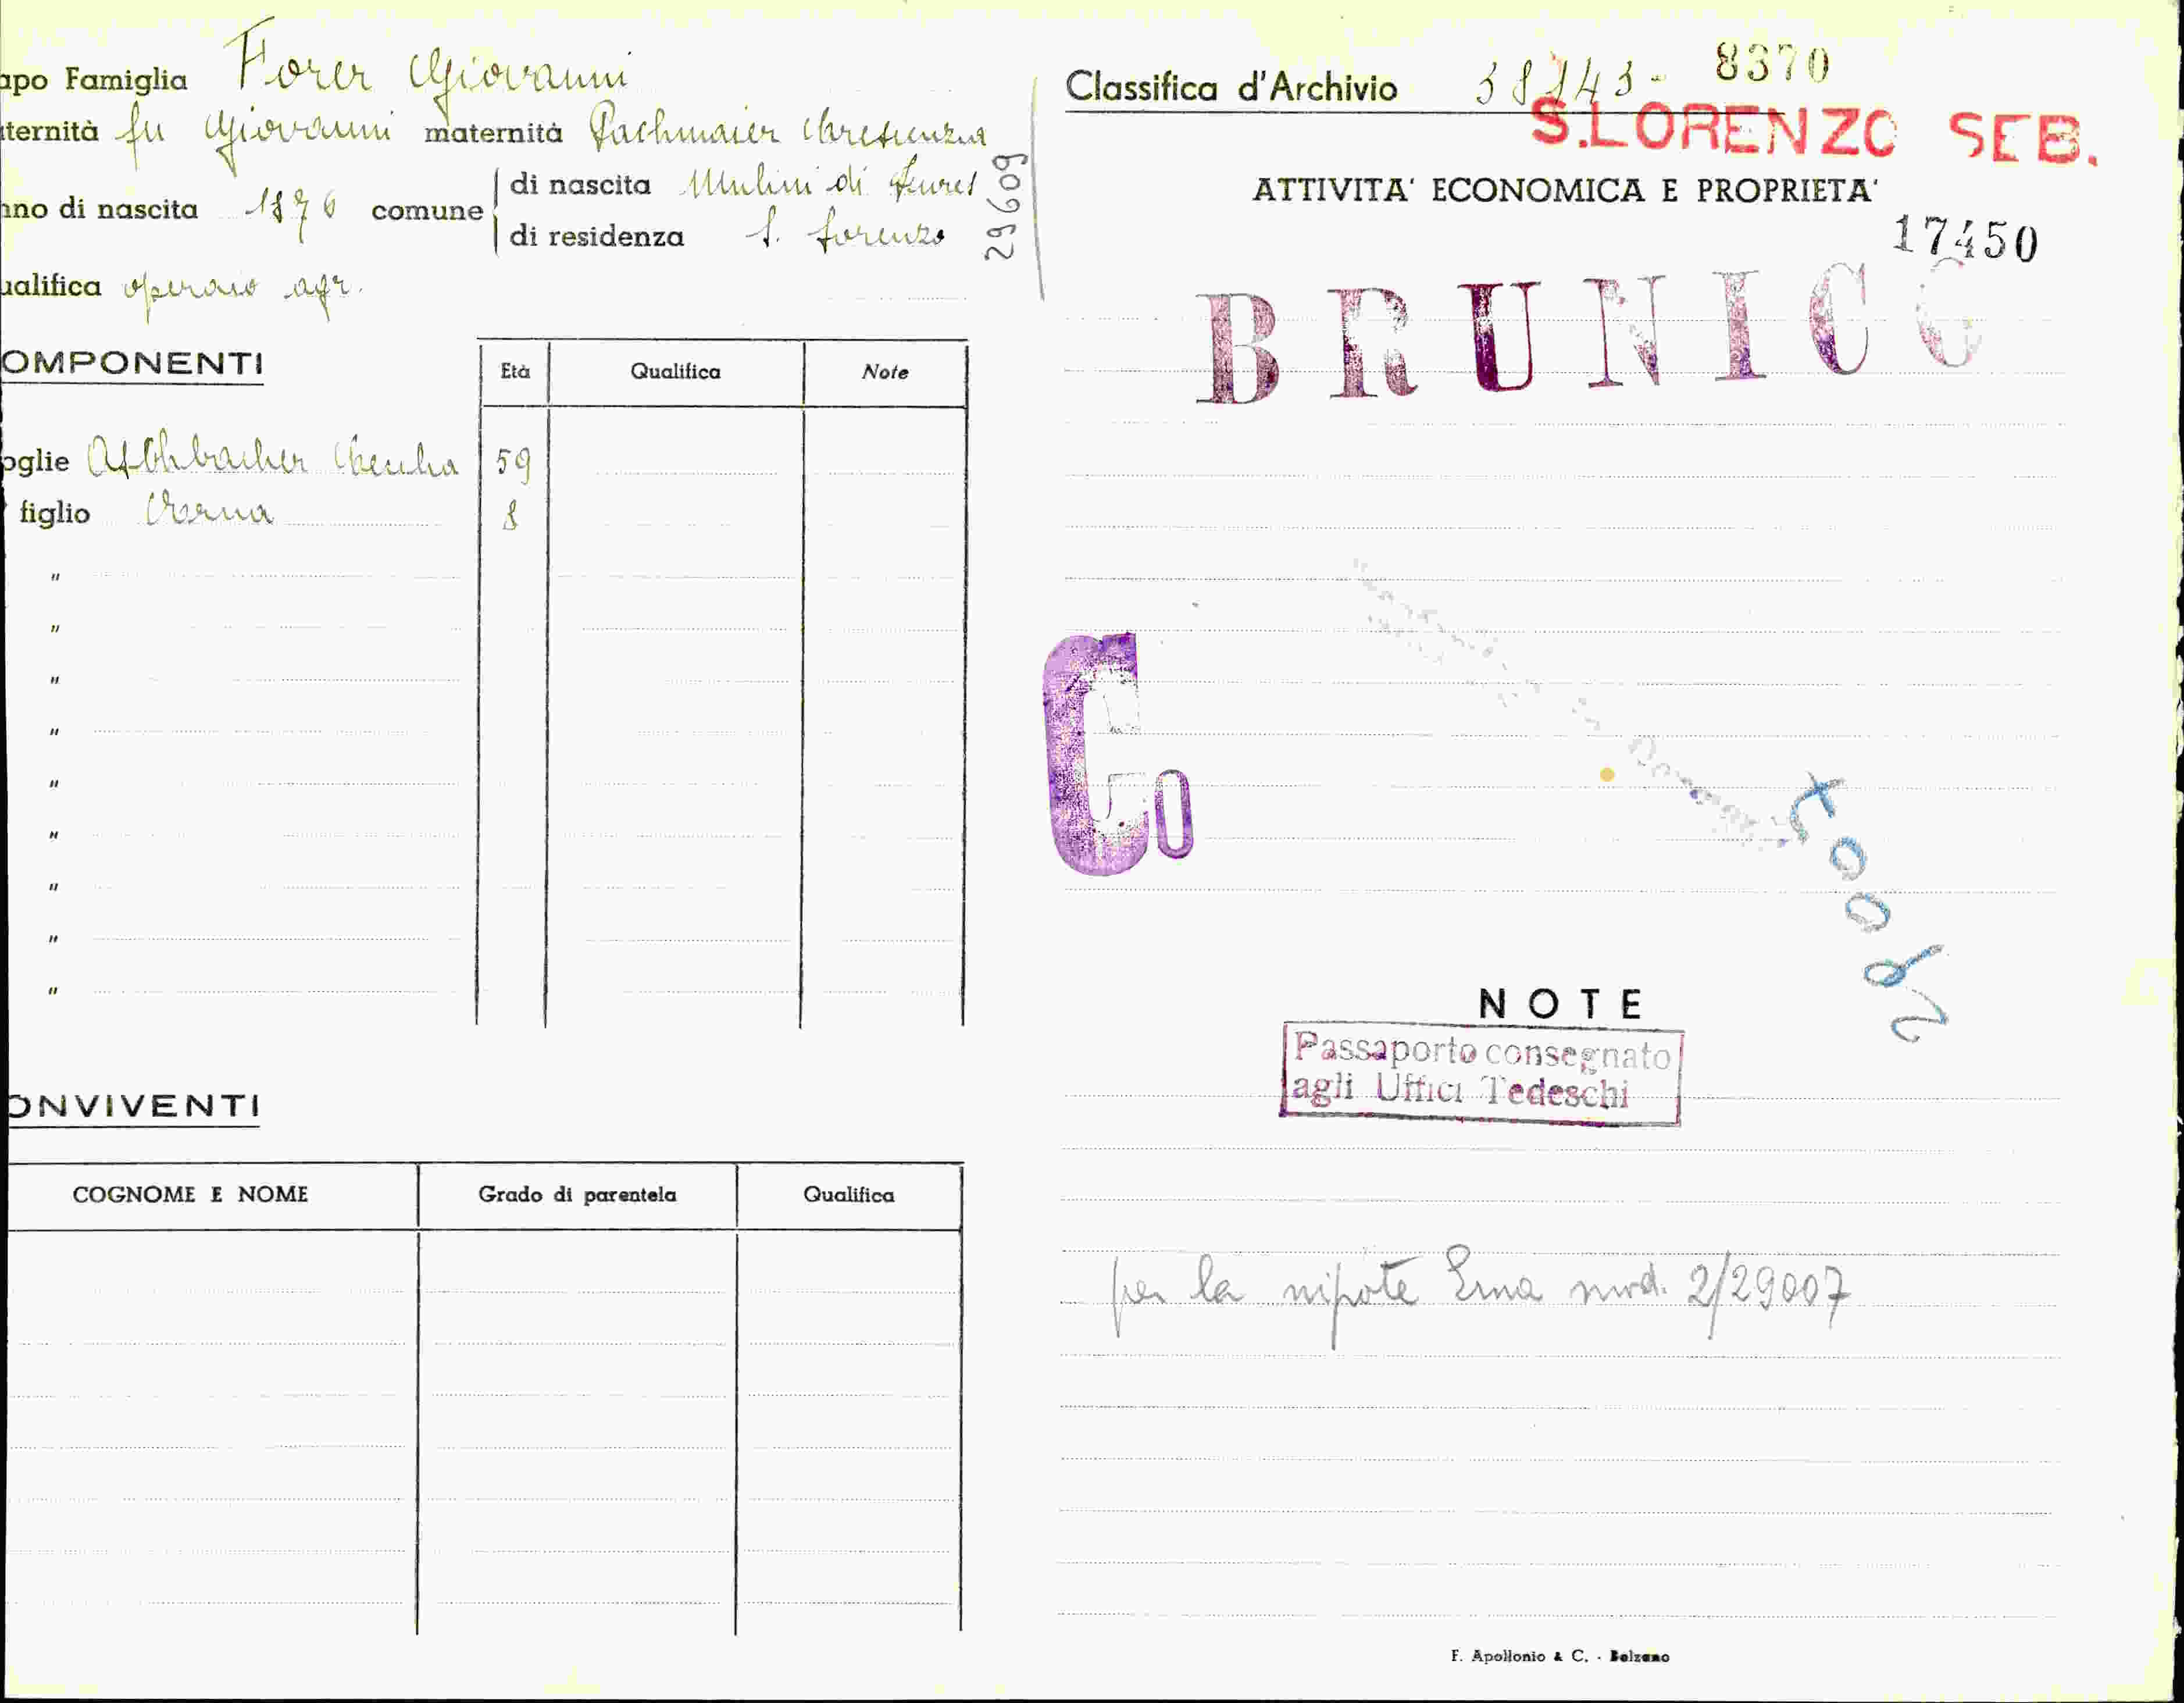 apo Famiglia Forer Giovanni
ternità fu Giovanni maternità Pachmaier
nno di nascita 1876 comune
di nascita Mulini di Tures
di residenza S. Lorenzo
29609
ualifica operaio agr.
OMPONENTI
Età Qualifica Note
oglie 59
figlio 8
"
"
"
"
"
"
"
"
"
ONVIVENTI
COGNOME E NOME Grado di parentela Qualifica
Classifica d'Archivio 38143- 8370
S.LORENZO SEB.
ATTIVITA' ECONOMICA E PROPRIETA'
17450
BRUNICO
Co
NOTE
Passaporto consegnato
agli Uffici Tedeschi
per la nipote Erna mod. 2/29007
F. Apollonio & C. - Bolzano